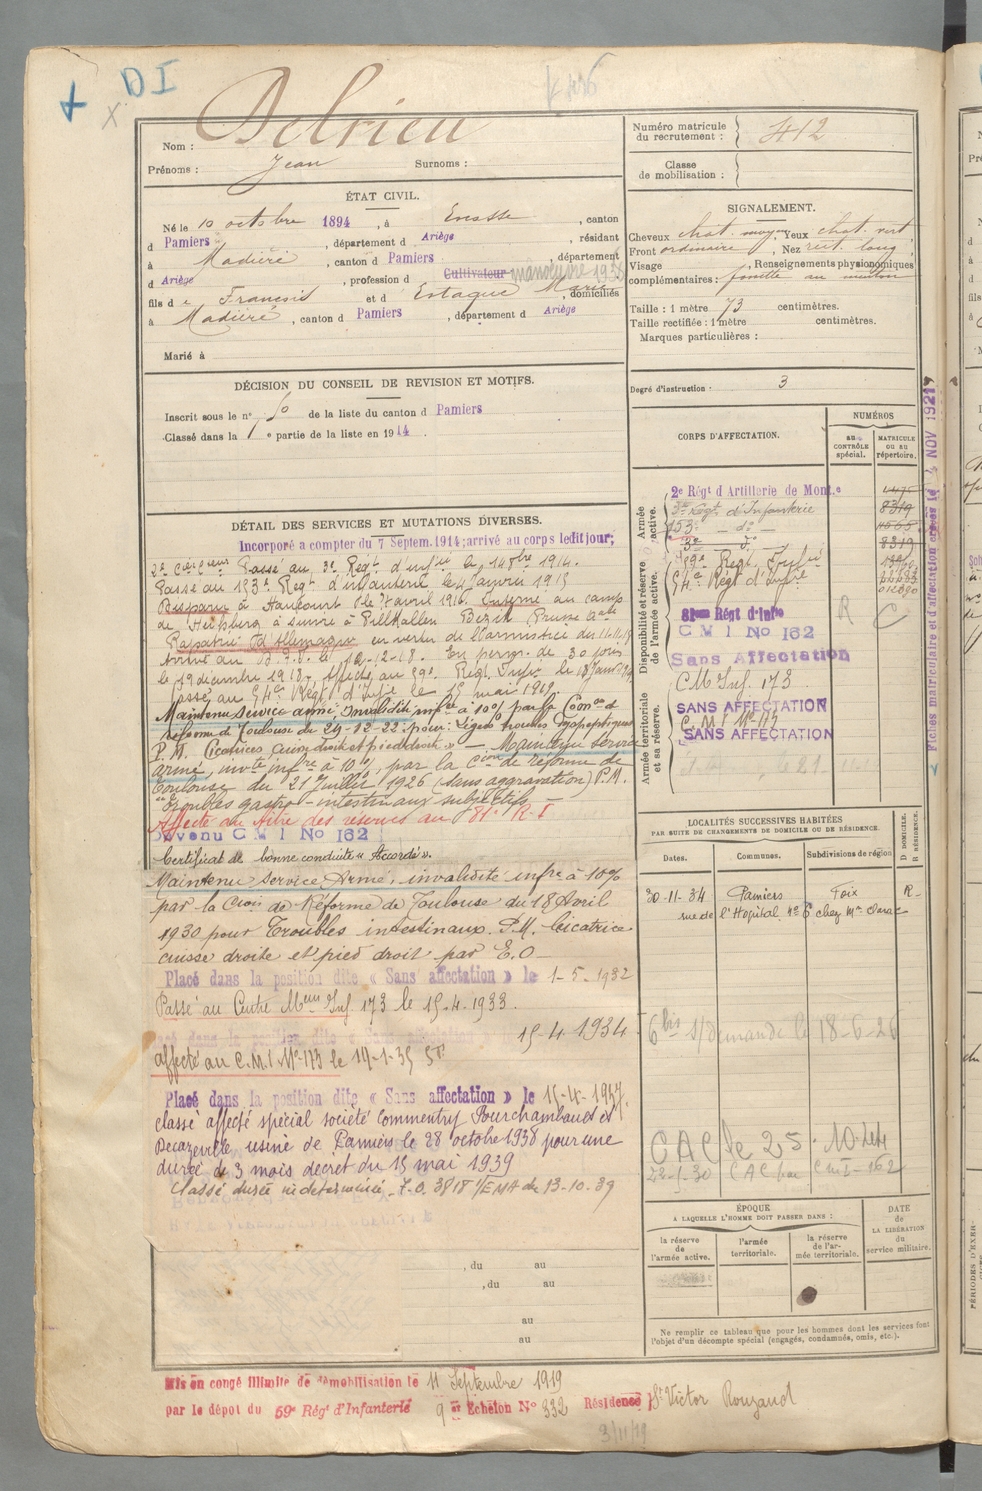 DI
Delrieu
Nom :
Prénoms : Jean Surnoms :
Numéro matricule du recrutement : 412
Classe de mobilisation :
ÉTAT CIVIL.
Né le 10 octobre 1894, à Enosse, canton
d Pamiers, département d Ariège, résidant
à Madière, canton d Pamiers, département
d Ariège, profession d Cultivateur manoeuvre
fils de François et d Estaque Marie, domiciliés
à Madière, canton d Pamiers, département d Ariège
Marié à
SIGNALEMENT.
Cheveux chat. moyen, Yeux chat. vert
Front ordinaire, Nez rect. long
Visage , Renseignements physionomiques
complémentaires : fossette au menton
Taille : 1 mètre 73 centimètres.
Taille rectifiée : 1 mètre centimètres.
Marques particulières :
Degré d'instruction : 3
DÉCISION DU CONSEIL DE REVISION ET MOTIFS.
Inscrit sous le n° 50 de la liste du canton d Pamiers
Classé dans la 1e partie de la liste en 1914.
CORPS D'AFFECTATION.
NUMÉROS
au CONTRÔLE spécial.
MATRICULE ou au répertoire.
Armée active.
2e Régt d'Artillerie de Mont.e
3e Régt d'Infanterie 8319
153e — do —
3e — do — 8319
Disponibilité et réserve de l'armée active.
59e Regt Infie
14e Regt d'Infie
81eme Régt d'Infie
C M I No 162
Sans Affectation
R C
CM Inf. 173
Armée territoriale et sa réserve.
SANS AFFECTATION
C. M I No 173
SANS AFFECTATION
Fiches matriculaire et d'affectation créées le 4 NOV 1921
DÉTAIL DES SERVICES ET MUTATIONS DIVERSES.
Incorporé a compter du 7 Septem. 1914; arrivé au corps ledit jour;
2e Can. Cteur Passé au 3e Régt d'Infie le 14 8bre 1914.
Passé au 153e Regt d'infanterie le 4 Janvier 1915
Disparu à Haucourt le 7 avril 1916. Interné au camp
de Heilsberg à suivre à Pillkallen Bezirk Prusse
Rapatrié d'Allemagne en vertu de l'armistice du 11-11-18
Arrivé au D.T.I. le 12-12-18. En perm. de 30 jours
le 19 décembre 1918. Affecté au 59e Régt Infie le 18 Janv. 1919
Passé au 14e Régt d'Infie le 15 mai 1919
Maintenu service armé, invalidité infre à 10% par la Comon de
réforme de Toulouse du 29-12-22 pour: Légers troubles dyspeptiques
P.M. Cicatrices cuisse droite et pied droit » — Maintenu service
armé, invté infre à 10% par la Cion de réforme de
Toulouse du 21 Juillet 1926 (sans aggravation) P.M.
"Troubles gastro-intestinaux subjectifs —
Affecté au titre des réserves au 81e R-I
Devenu C M I No 162
Certificat de bonne conduite « Accordé ».
Maintenu service Armé, invalidité infre à 10%
par la Cion de Réforme de Toulouse du 18 Avril
1930 pour Troubles intestinaux. P.M. Cicatrice
cuisse droite et pied droit par E.O —
Placé dans la position dite « Sans affectation » le 1-5-1932
Passé au Centre Meur Inf. 173 le 15-4-1933.
Placé dans la position dite « Sans affectation » 15-4-1934
affecté au C.M.I. No 173 le 14-1-35
Placé dans la position dite « Sans affectation » le 15-4-1937.
classé affecté spécial société Commentry Fourchambaud et
Decazeville usine de Pamiers le 28 octobre 1938 pour une
durée de 3 mois décret du 15 mai 1939
Classé durée indéterminée F.O. 3818 1/EMA du 13-10-39
LOCALITÉS SUCCESSIVES HABITÉES
PAR SUITE DE CHANGEMENTS DE DOMICILE OU DE RÉSIDENCE.
Dates. Communes. Subdivisions de région
D DOMICILE. R RÉSIDENCE.
30-11-34 Pamiers Foix R-
rue de l'Hopital No 6 chez Mr
6 bis s/demande le 18-6-26
CAC le 25-10-
22-1-30 CAC par CMI-162
ÉPOQUE
A LAQUELLE L'HOMME DOIT PASSER DANS :
la réserve de l'armée active.
l'armée territoriale.
la réserve de l'armée territoriale.
DATE de LA LIBÉRATION du service militaire.
, du au
, du au
au
au
Ne remplir ce tableau que pour les hommes dont les services font
l'objet d'un décompte spécial (engagés, condamnés, omis, etc.).
Mis en congé illimité de démobilisation le 11 Septembre 1919
par le dépot du 59e Régt d'Infanterie 9 er Echelon No 332 Résidence St Victor Rouzaud
3/11/19